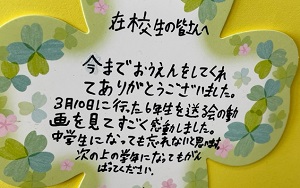 在校生の皆以へ
今までおうえんをしてくれ
てありがとうございました。
3月10日に行った6年生を送る会の動
画を見てすごく感動しました。
中学生になっても忘れないと思います
次の上の学年になってもがん
ばってください。